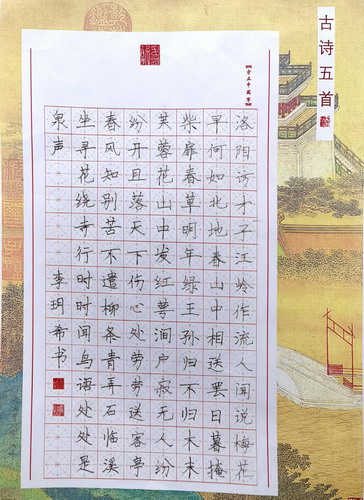 古诗五首
洛阳访才子江岭作流人闻说梅花
早何如北地春山中相送罢日暮掩
柴扉春草明年绿王孙归不归木末
芙蓉花山中发红萼涧户寂无人纷
纷开且落天下伤心处劳劳送客亭
春风知别苦不遣柳条青弄石临溪
坐寻花绕寺行时时闻鸟语处处是
泉声 李玥希书